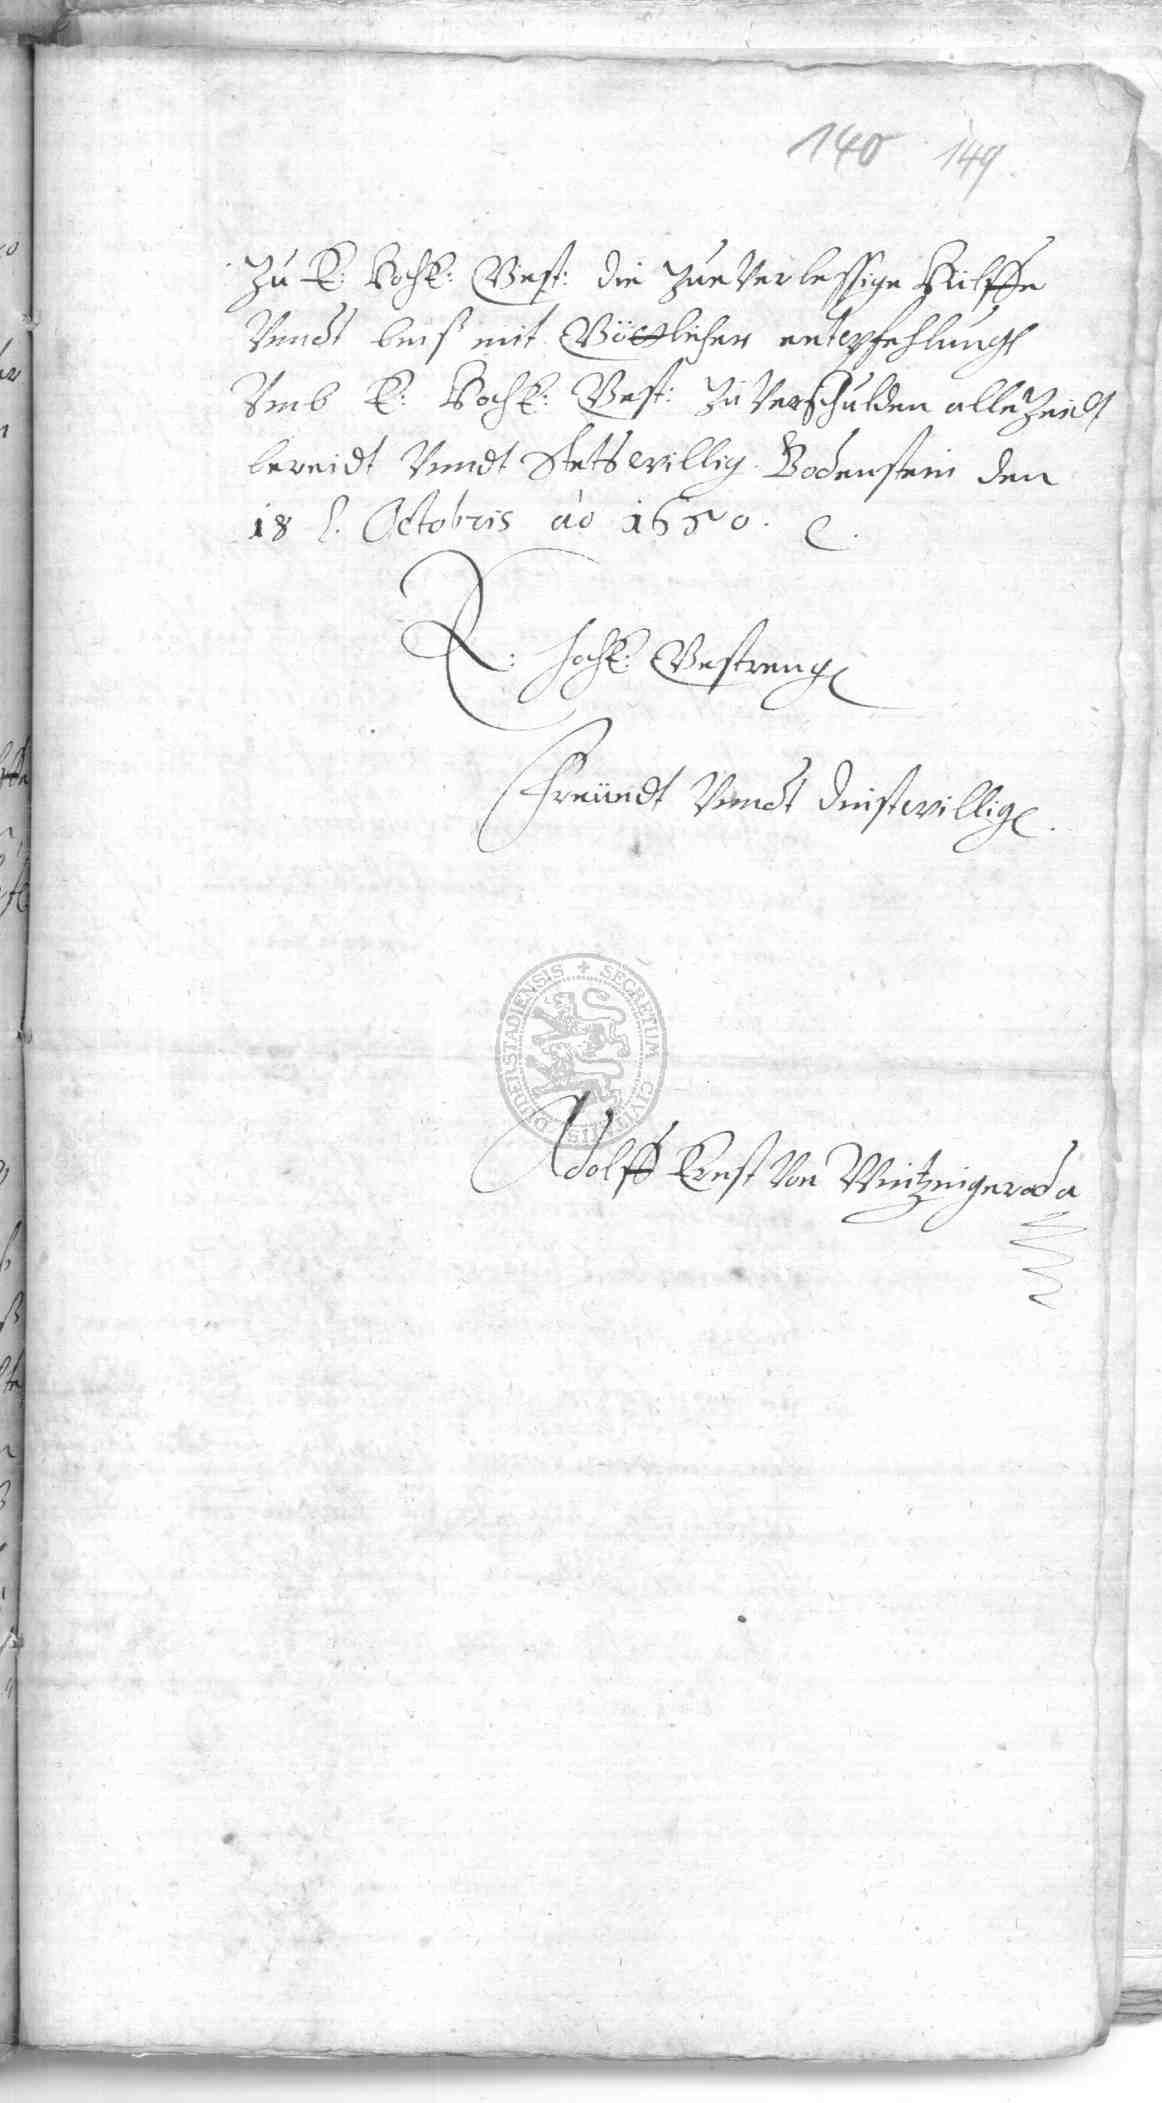 140 149
Zu E: HochE: Gest: die zueverlessige Hülffe
Vnndt bins mit Göttlicher entpfehlung
Vmb E: HochE: Gest: zu verschulden alle Zeidt
bereidt Vnndt stets willig. Bodenstein den
18 t. Octobris ao 1650. e.
E: HochE: Gestreng
Freündt Vnndt dinstwillige.
DUDERSTADIENSIS + SECRETUM CIVITATIS
Adolff Ernst Von Wintzingeroda